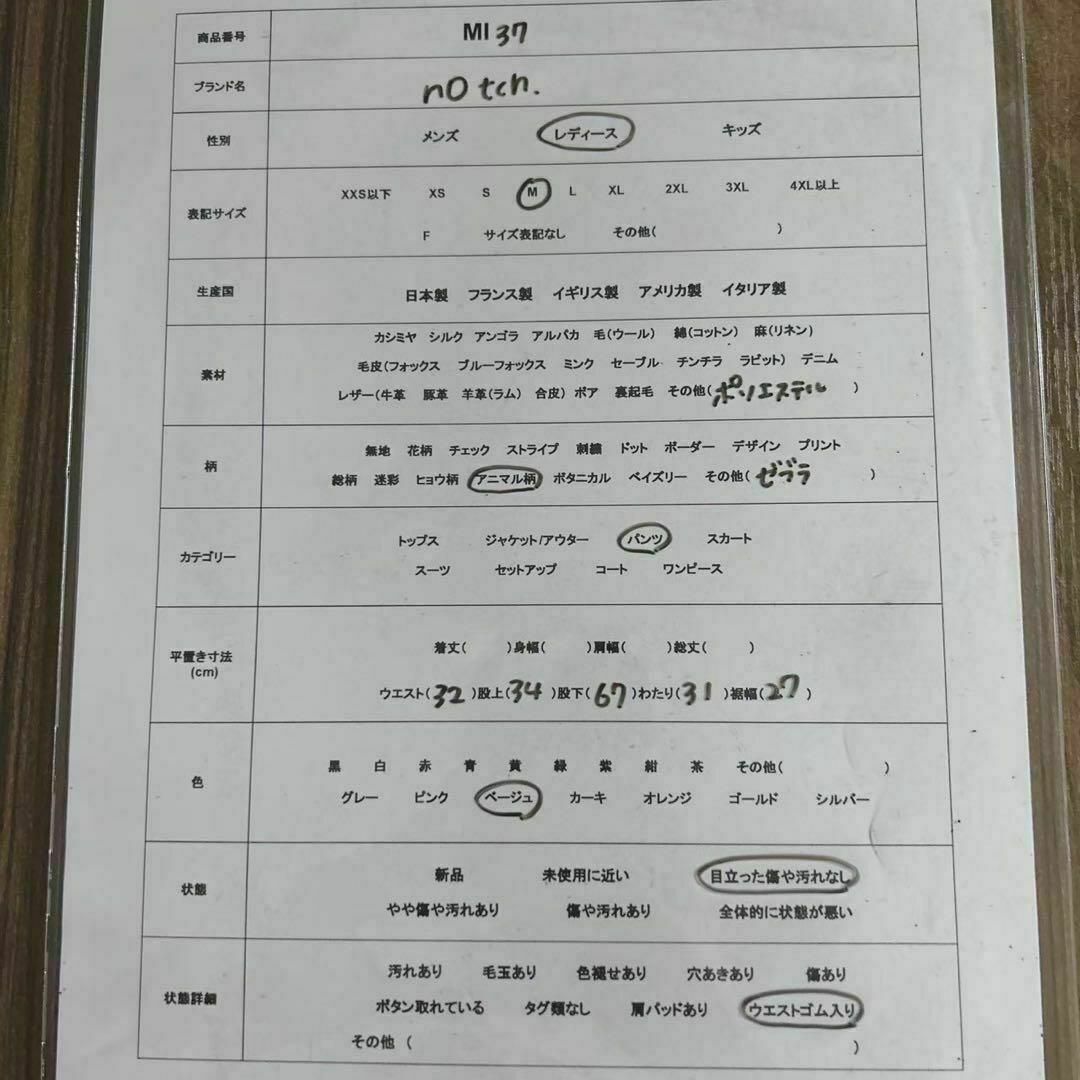 商品番号 MI 37
ブランド名 nOtch.
性別 メンズ レディース キッズ
XXS以下 XS S M L XL 2XL 3XL 4XL以上
表記サイズ
F サイズ表記なし その他( )
生産国 日本製 フランス製 イギリス製 アメリカ製 イタリア製
カシミヤ シルク アンゴラ アルパカ 毛(ウール) 綿(コットン) 麻(リネン)
素材 毛皮(フォックス ブルーフォックス ミンク セーブル チンチラ ラビット) デニム
レザー(牛革 豚革 羊革(ラム) 合皮) ボア 裏起毛 その他(ポリエステル )
柄 無地 花柄 チェック ストライプ 刺繍 ドット ボーダー デザイン プリント
総柄 迷彩 ヒョウ柄 アニマル柄 ボタニカル ペイズリー その他(ゼブラ )
トップス ジャケット/アウター パンツ スカート
カテゴリー
スーツ セットアップ コート ワンピース
平置き寸法 着丈( )身幅( )肩幅( )総丈( )
(cm)
ウエスト(32)股上(34)股下(67)わたり(31)裾幅(27)
黒 白 赤 青 黄 緑 紫 紺 茶 その他( )
色
グレー ピンク ベージュ カーキ オレンジ ゴールド シルバー
状態 新品 未使用に近い 目立った傷や汚れなし
やや傷や汚れあり 傷や汚れあり 全体的に状態が悪い
汚れあり 毛玉あり 色褪せあり 穴あきあり 傷あり
状態詳細 ボタン取れている タグ類なし 肩パッドあり ウエストゴム入り
その他 ( )